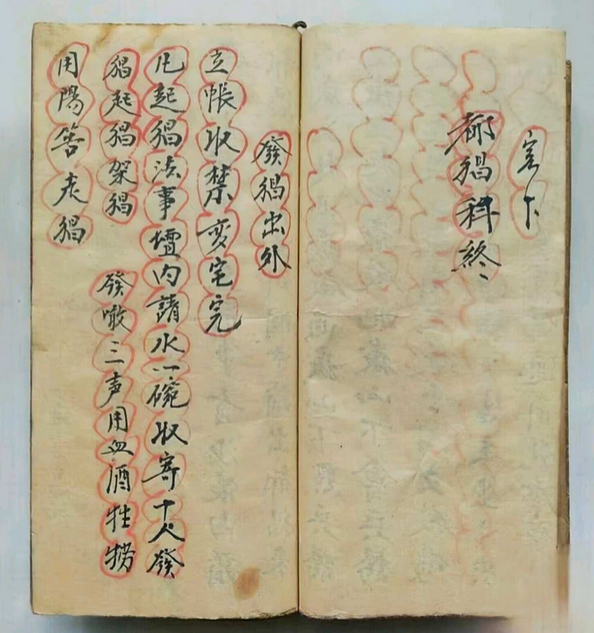 完下
都猖科終
發猖出外
立帳収禁变宅完
凡起猖法事壇内請水一碗収寄十人發
猖起猖架猖
發噉三声用血酒牲捞
用陽筶表猖